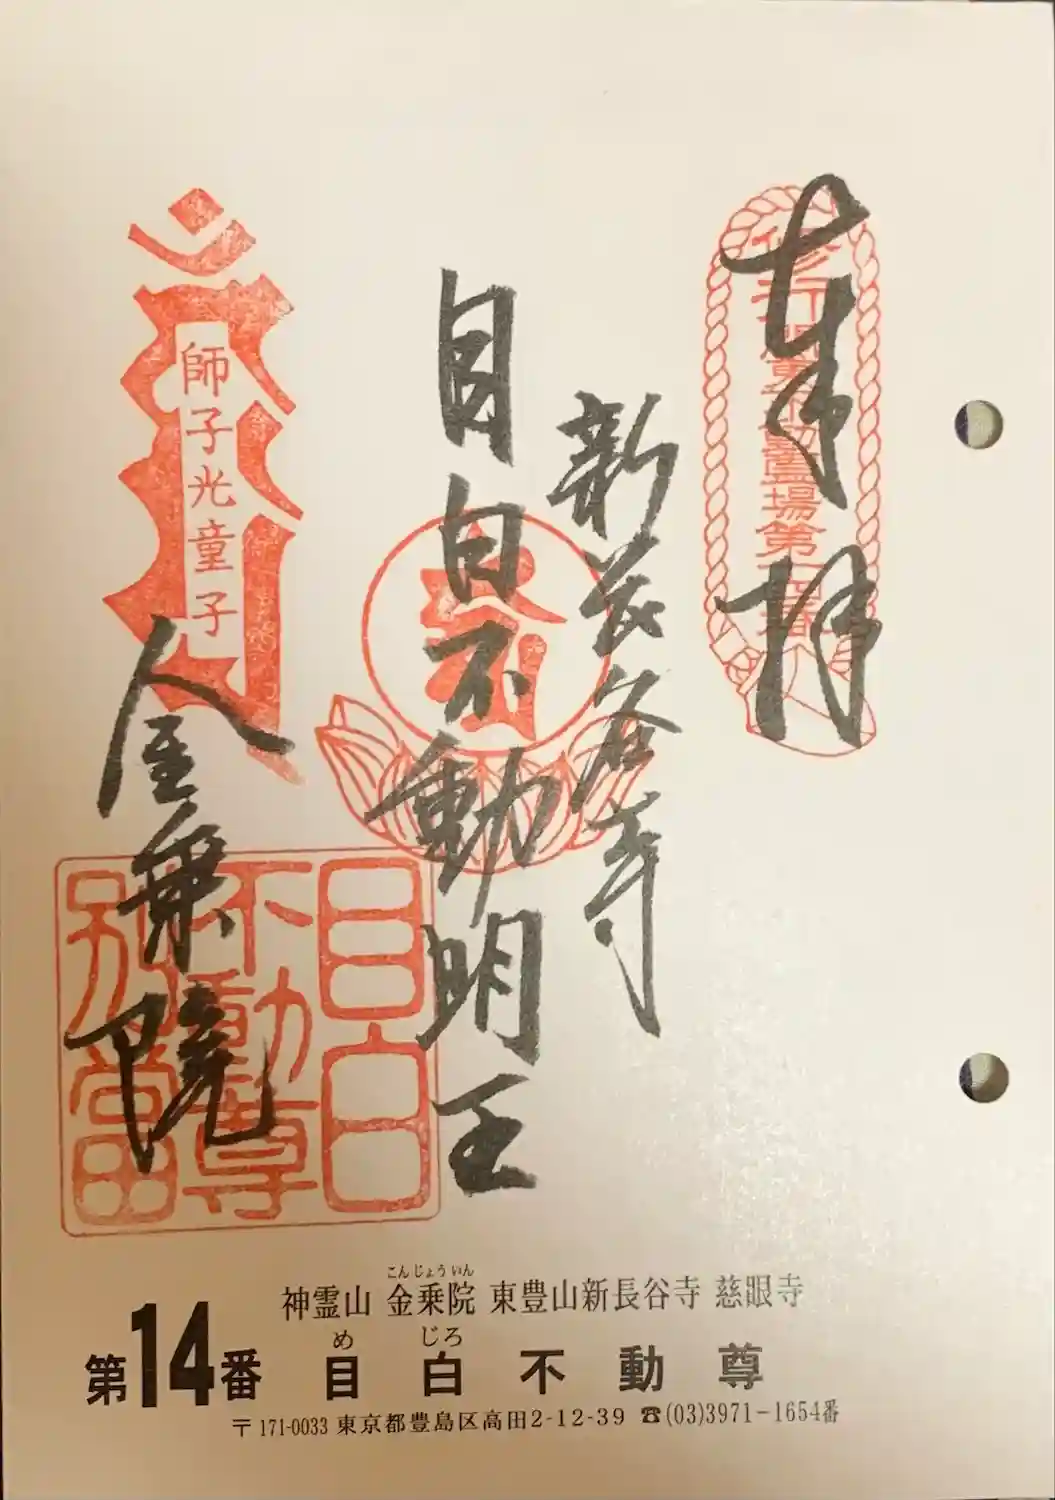 奉拝
修行 関東不動霊場第十四番
新長谷寺
目白不動明王
師子光童子
金乗院
目白
不動尊
別當
こんじょういん
神霊山 金乗院 東豊山新長谷寺 慈眼寺
め じろ
第14番 目白不動尊
〒171-0033 東京都豊島区高田2-12-39 ☎(03)3971-1654番